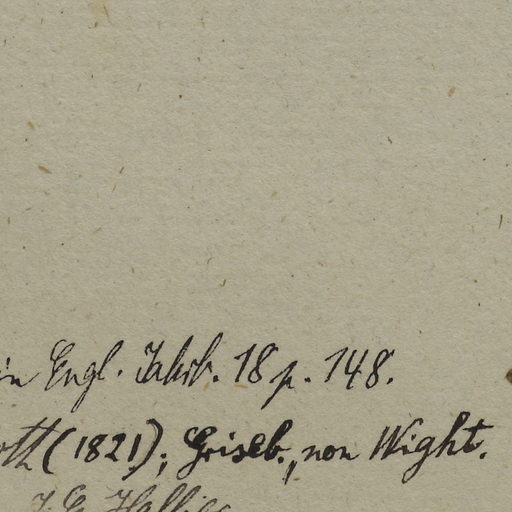 in Engl. Jahrb. 18 p. 148.
oth (1821); Griseb., non Wight.